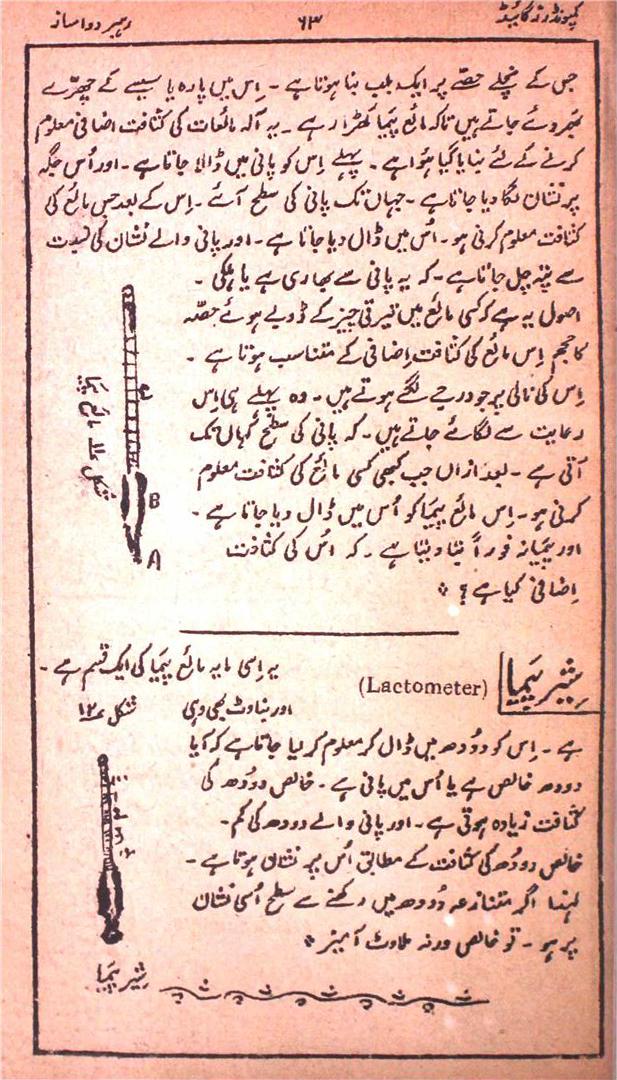 کمپونڈرز گائیڈ ۶۳ رہبر دواساز
جس کے نچلے حصّے پر ایک بلب بنا ہوتا ہے ۔ اِس میں پارہ یا سیسے کے چھرّے
بھر دئے جاتے ہیں تاکہ مائع پیما کھڑا رہے ۔ یہ آلہ مائعات کی کثافت اضافی معلوم
کرنے کے لئے بنایا گیا ہُوا ہے ۔ پہلے اِس کو پانی میں ڈالا جاتا ہے ۔ اور اُس جگہ
پر نشان لگا دیا جاتا ہے ۔ جہاں تک پانی کی سطح آئے ۔ اِس کے بعد جس مائع کی
کثافت معلوم کرنی ہو ۔ اُس میں ڈال دیا جاتا ہے ۔ اور پانی والے نشان کی نسبت
سے پتہ چل جاتا ہے ۔ کہ یہ پانی سے بھاری ہے یا ہلکی ۔
اصول یہ ہے کہ کسی مائع میں تیرتی چیز کے ڈوبے ہوئے حصّہ
کا حجم اِس مائع کی کثافتِ اِضافی کے متناسب ہوتا ہے ۔
اِس کی نالی پر جو درجے لگے ہوتے ہیں ۔ وہ پہلے ہی اِس
رعایت سے لگائے جاتے ہیں ۔ کہ پانی کی سطح کہاں تک
آتی ہے ۔ بعد ازاں جب کبھی کسی مائع کی کثافت معلوم
کرنی ہو ۔ اِس مائع پیما کو اُس میں ڈال دیا جاتا ہے ۔
اور پیمانہ فوراً بتا دیتا ہے ۔ کہ اُس کی کثافت
اِضافی کیا ہے ؟
شکل ۱۱ مائع پیما
B
A
شِیر پَیما (Lactometer) یہ اِسی مایہ مائع پیما کی ایک قسم ہے ۔
اور بناوٹ بھی وہی
شکل ۱۲
ہے ۔ اِس کو دودھ میں ڈال کر معلوم کر لیا جاتا ہے کہ آیا
دودھ خالص ہے یا اُس میں پانی ہے ۔ خالص دودھ کی
کثافت زیادہ ہوتی ہے ۔ اور پانی والے دودھ کی کم ۔
خالص دودھ کی کثافت کے مطابق اُس پر نشان ہوتا ہے ۔
لہٰذا اگر متنازعہ دودھ میں رکھنے سے سطح اُسی نشان
پر ہو ۔ تو خالص ورنہ ملاوٹ آمیز
شِیر پَیما